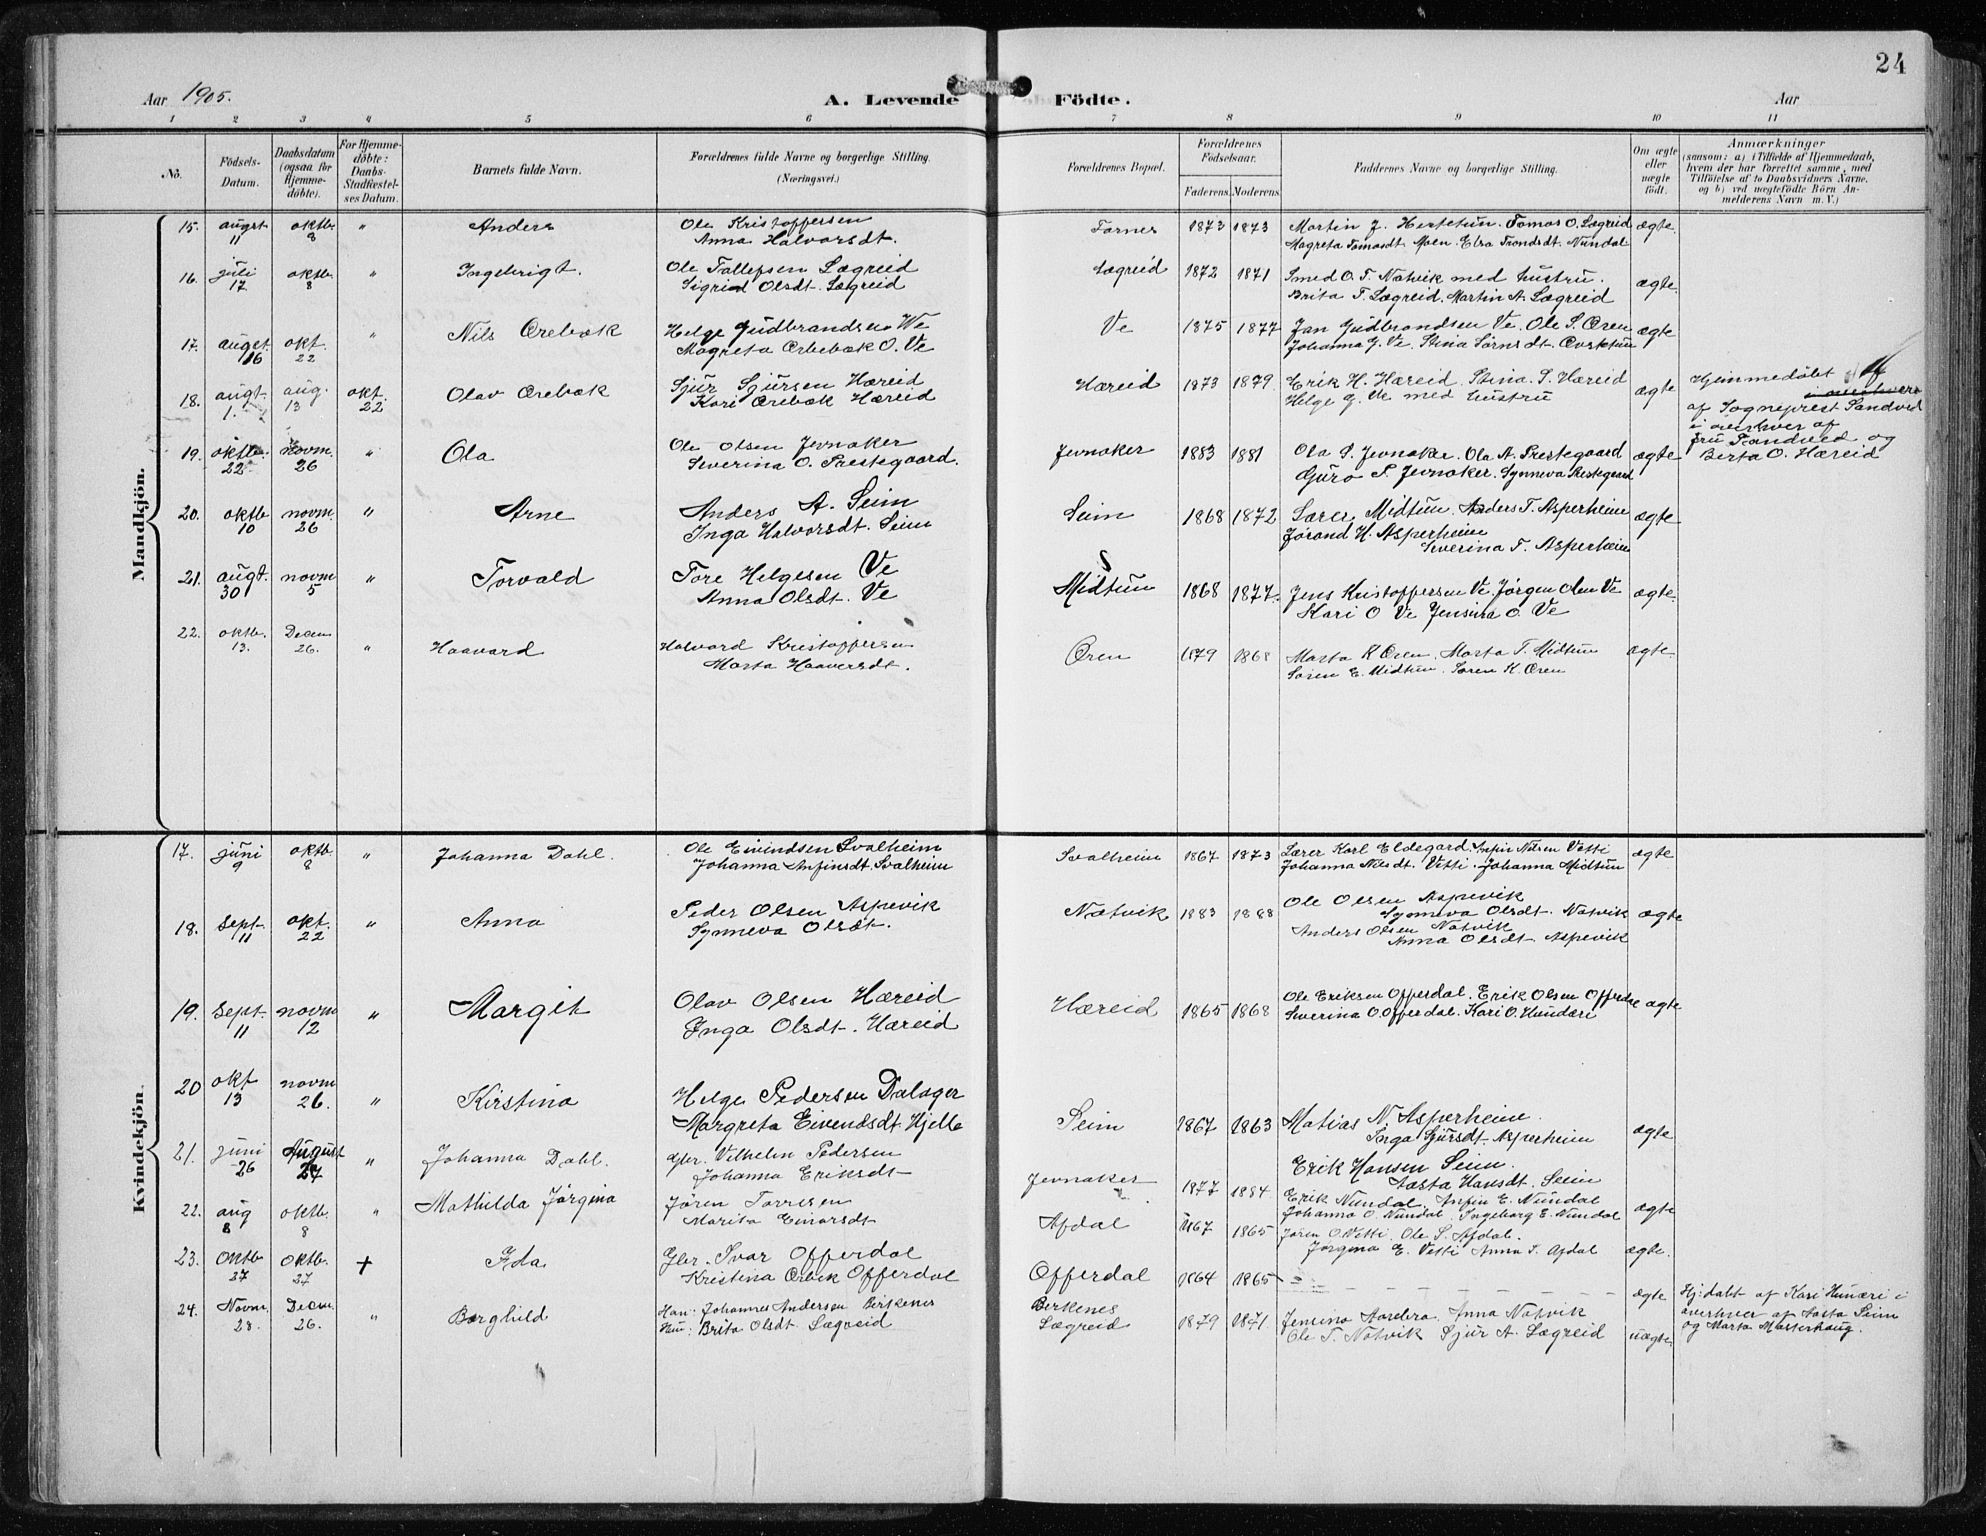 24
Aar 1905.
A. Levende Födte.
Aar
1 2 3 4 5 6 7 8 9 10 11
No.
Födsels-Datum.
Daabsdatum (ogsaa for Hjemmedöbte).
For Hjemmedöbte: Daabs-Stadfæstelses Datum.
Barnets fulde Navn.
Forældrenes fulde Navne og borgerlige Stilling. (Næringsvei.)
Forældrenes Bopæl.
Forældrenes Födselsaar.
Faderens. Moderens.
Faddernes Navne og borgerlige Stilling.
Om ægte eller uægte födt.
Anmærkninger
(saasom: a) i Tilfælde af Hjemmedaab, hvem der har forrettet samme, med Tilföielse af to Daabsvidners Navne. og b) ved uægtefödte Börn Anmelderens Navn m. V.)
Mandkjön.
15. augst 11 oktb. 8 " Anders Ole Kristoffersen Anna Halvorsdt. Tornes 1873 1873 Martin J. Hertetun. Tomas O. Lægreid Magreta Tomasdt Moen. Elsa Trondsdt. Nundal ægte.
16. juli 17 oktb. 8 " Ingebrigt. Ole Tollefsen Lægreid Sigrid Olsdt. Lægreid Lægreid 1872 1871 Smed O. T. Natvik med hustru. Brita T. Lægreid. Martin A. Lægreid ægte.
17. augst. 16 okt. 22 " Nils Ørebæk Helge Gudbrandsen We Magreta Ørbebæk O. Ve Ve 1875 1877 Jan Gudbrandsen Ve. Ole S. Øren Johanna G. Ve. Stina Sørnsdt. ægte
18. augt. 1. aug. 13 okt. 22 Olav Ørebæk Sjur Sjursen Hæreid Kari Ørebæk Hæreid Hæreid 1873 1879 Erik H. Hæreid. Stina. S. Hæreid Helge G. Ve med hustru ægte Hjemmedøbt af Sogneprest Sandved i overhver af fru Sandved og Berta O. Hæreid
19. oktb. 22 Novm. 26 " Ola Ole Olsen Jevnaker Severina O. Prestegaard. Jevnaker 1883 1881 Ola S. Jevnaker. Ola A. Prestegaard Guro S. Jevnaker. Synneva Prestegaard ægte
20. oktb 10 novm. 26 " Arne Anders A. Seim Inga Halvorsdt. Seim Seim 1868 1872 Lærer Midtun. Anders T. Asperheim Jørand H. Asperheim Severina T. Asperheim ægte
21. augt. 30 novm 5 " Torvald Tore Helgesen Ve Anna Olsdt. Ve Midtun 1868 1877. Jens Kristoffersen Ve. Jørgen Olsen Ve Kari O Ve Jensina O. Ve ægte.
22. oktb. 13. Decem 26. " Haavard Halvord Kristoffersen Marta Haaversdt. Øren 1879 1868 Marta K Øren. Marta T. Midtun Søren E. Midtun. Søren K. Øren ægte.
Kvindekjön.
17. juni 9 oktb. 8 " Johanna Dahl. Ole Eivindsen Svalheim Johanna Anfinsdt. Svalheim Svalheim 1867 1873 Lærer Karl Eldegard. Anfin Nilsen Vetti Johanna Nilsdt. Vetti. Johanna Midtun ægte
18. Sept. 11 okt. 22 " Anna Peder Olsen Aspevik Synneva Olsdt. Natvik 1883 1888 Ole Olsen Aspevik Synneva Olsdt. Natvik Anders Olsen Natvik Anna Olsdt. Aspevik ægte
19. Sept. 11 novm 12 " Margit Olav Olsen Hæreid Inga Olsdt. Hæreid Hæreid 1865 1868 Ole Eriksen Offerdal. Erik Olsen Offerdal Severina O. Offerdal. Kari O. Hunderi ægte
20 okt 13 novm 26. " Kirstina Helge Pedersen Dalager Margreta Eivendsdt. Hjelle Seim 1867 1863 Matias N. Asperheim. Inga Sjursdt. Asperheim Erik Hansen Seim. Aasta Hansdt. Seim ægte
21. juni 26 August 27 " Johanna Dahl. Gbr. Vilhelm Pedersen Johanna Eriksdt. Jevnaker 1877 1884 Erik Nundal. Anfin E. Nundal Johanna O. Nundal. Ingeborg E. Nundal ægte
22. aug 8 oktb. 8 " Mathilda Jørgina Jøren Torresen Marita Einarsdt Afdal 1867 1865 Jøren O. Vetti. Ole S. Afdal. Jørgina E. Vetti Anna T. Afdal ægte.
23. Oktb 27 Oktb. 27 + Ida Gbr. Ivar Offerdal Kristina Ørbæk Offerdal Offerdal 1864 1865 ægte Hj: døbt af Kari Hunæri i overhver af Aasta Seim og Marta
24. Novm. 28. Decm. 26. " Borghild Han: Johannes Andersen Birkenes Hun: Brita Olsdt Lægreid Berkenes Lægreid 1879 1871 Anna Natvik Ole T. Natvik Sjur A. Lægreid uægte.